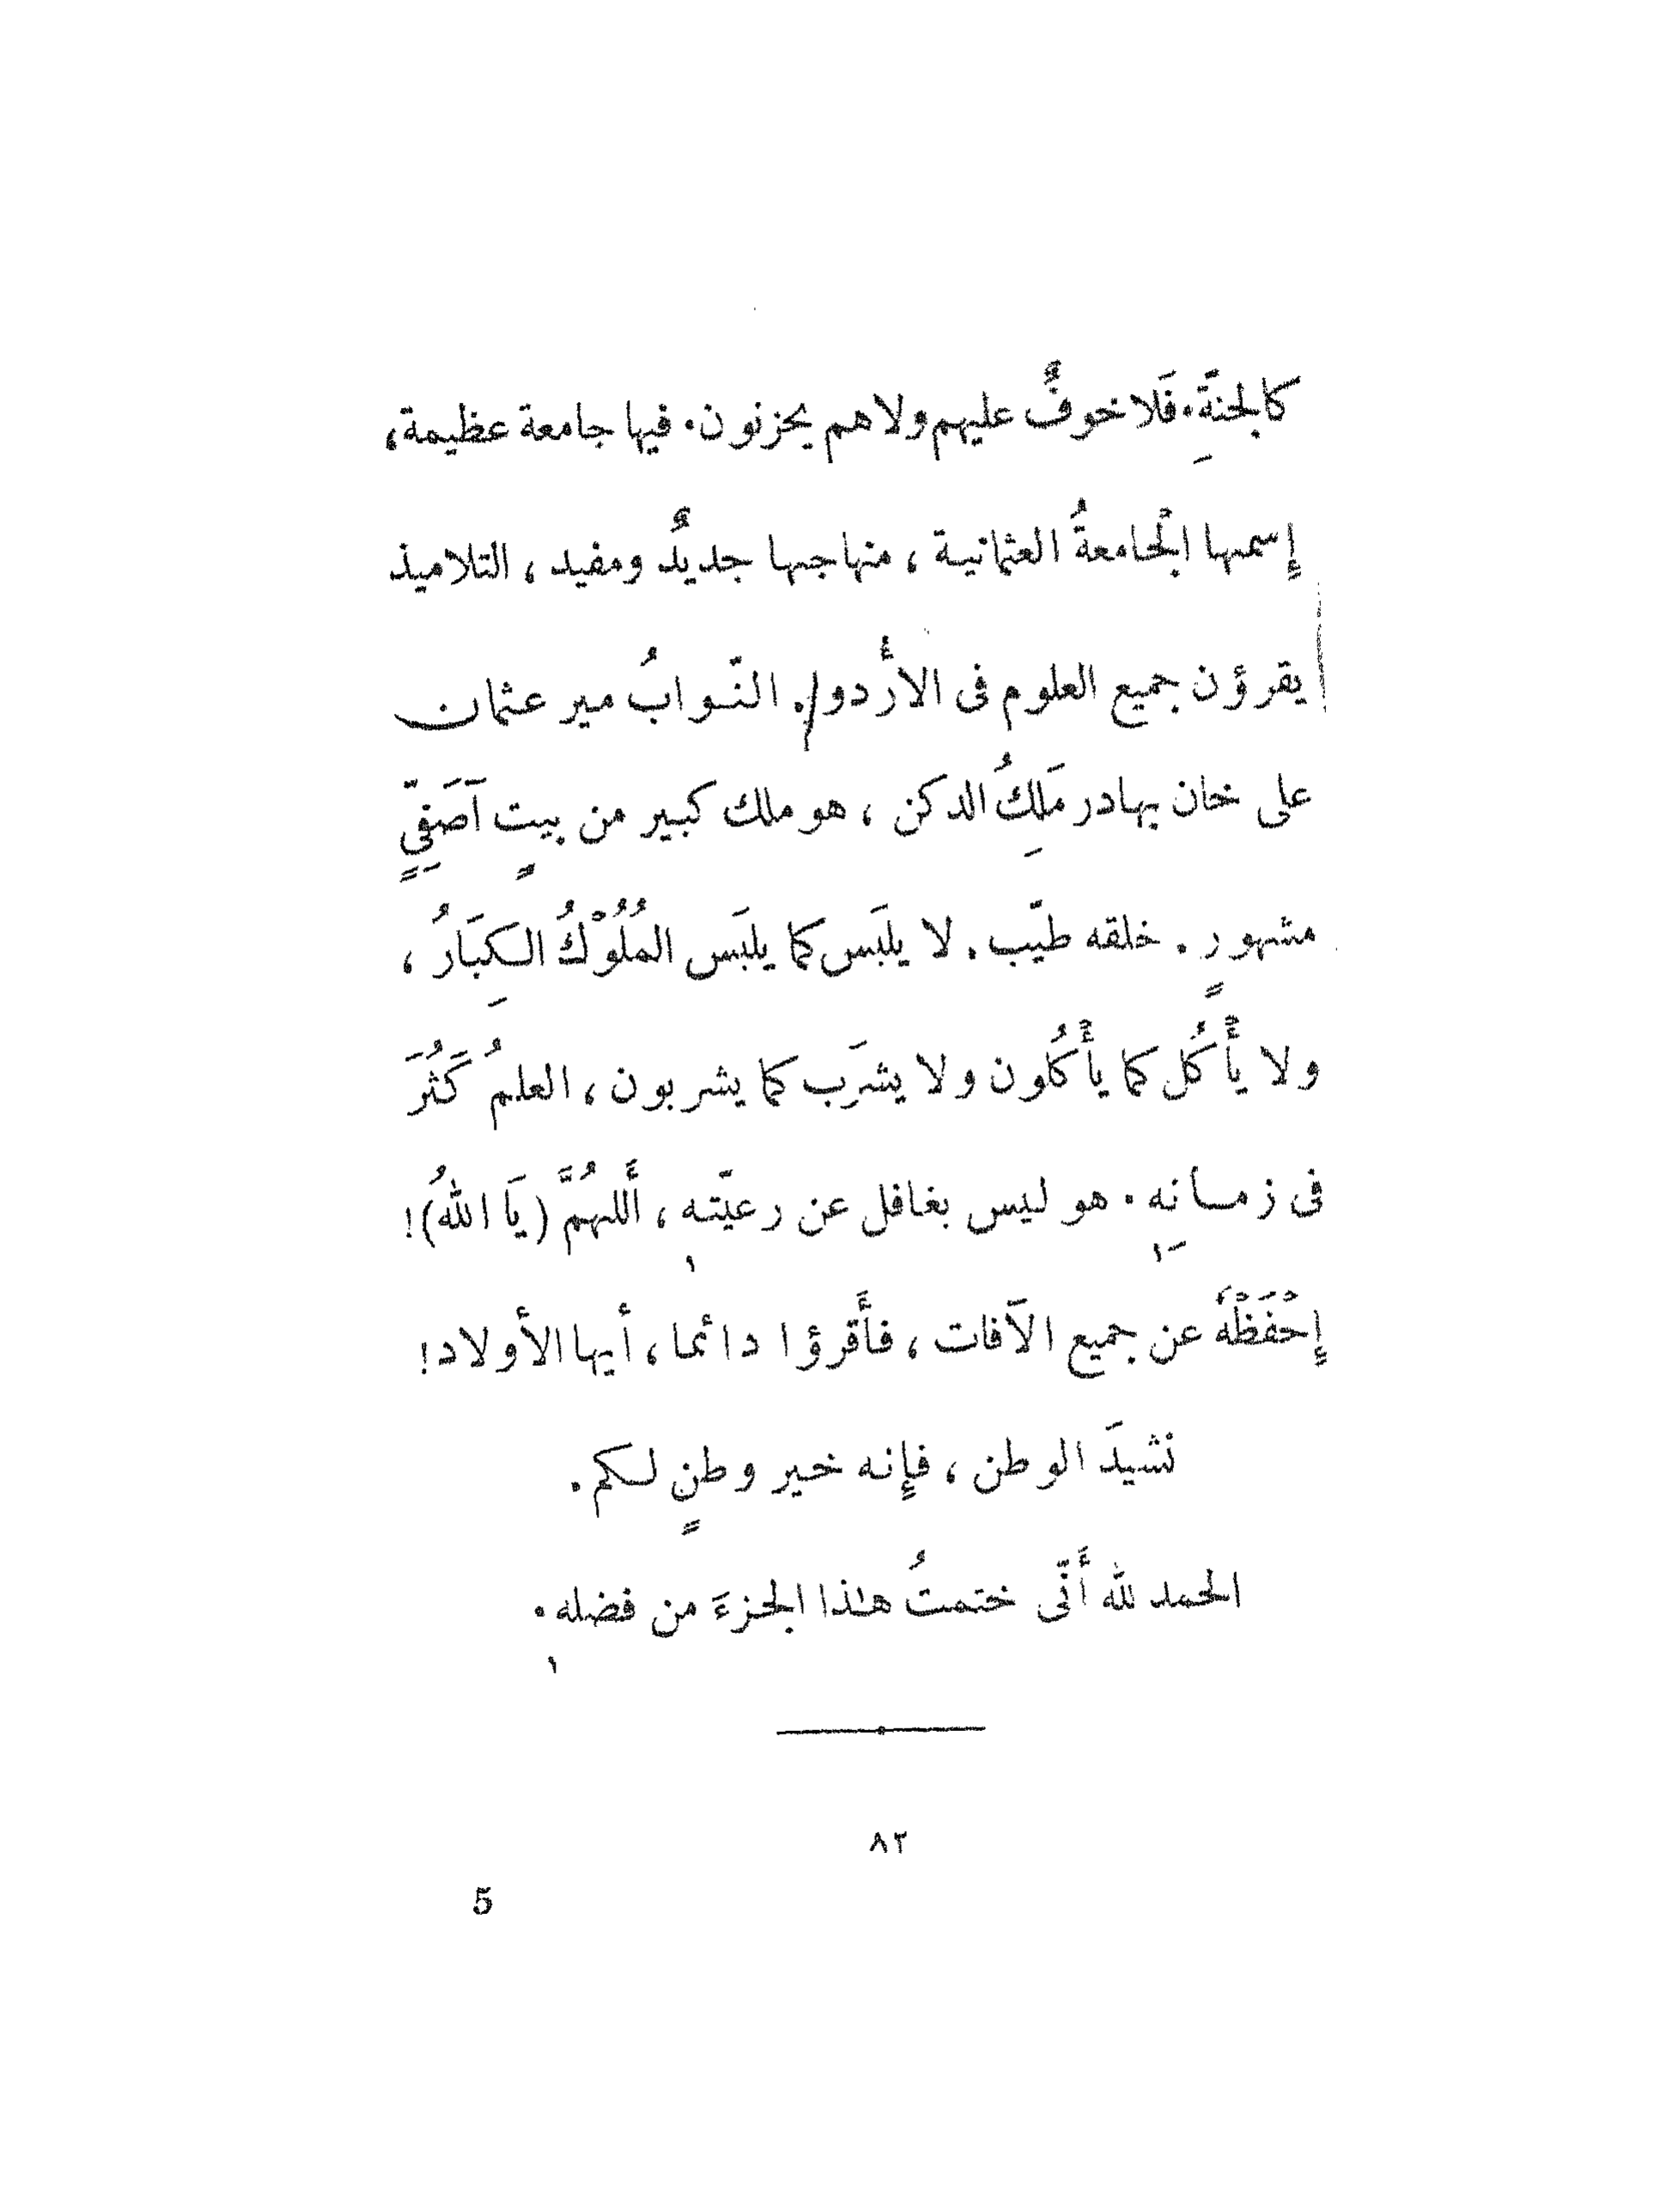 كالجنّةِ. فَلا خوفٌ عليهم ولا هم يحزنون. فيها جامعة عظيمة،
إِسمها الْجامعةُ العثمانية ، منهاجها جديدٌ ومفيد ، التلاميذ
يقرؤن جميع العلوم فى الأردو. النّوابُ مير عثمان
على خان بهادر مَلِكُ الدكن ، هو ملك كبير من بيتٍ آصَفِيٍّ
مشهورٍ . خلقه طيّب . لا يلبَس كما يلبَس المُلُوْكُ الكِبَارُ ،
ولا يأْكُل كما يأْكُلون ولا يشرَب كما يشربون ، العلمُ كَثُرَ
فى زمانِهٖ . هو ليس بغافل عن رعيّتهٖ ، أَللهُمَّ (يَا اللهُ)!
إِحْفَظْهُ عن جميع الآفات ، فأَقرؤا دائما ، أيها الأولاد!
نشيدَ الوطن ، فإِنه خير وطنٍ لكم .
الحمد لله أَنّى ختمتُ هٰذا الجزءَ من فضلهٖ .
٨٢
5